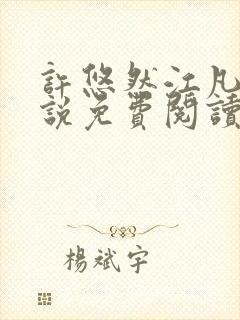 許悠然江凡
說免費閱讀
楊斌宇